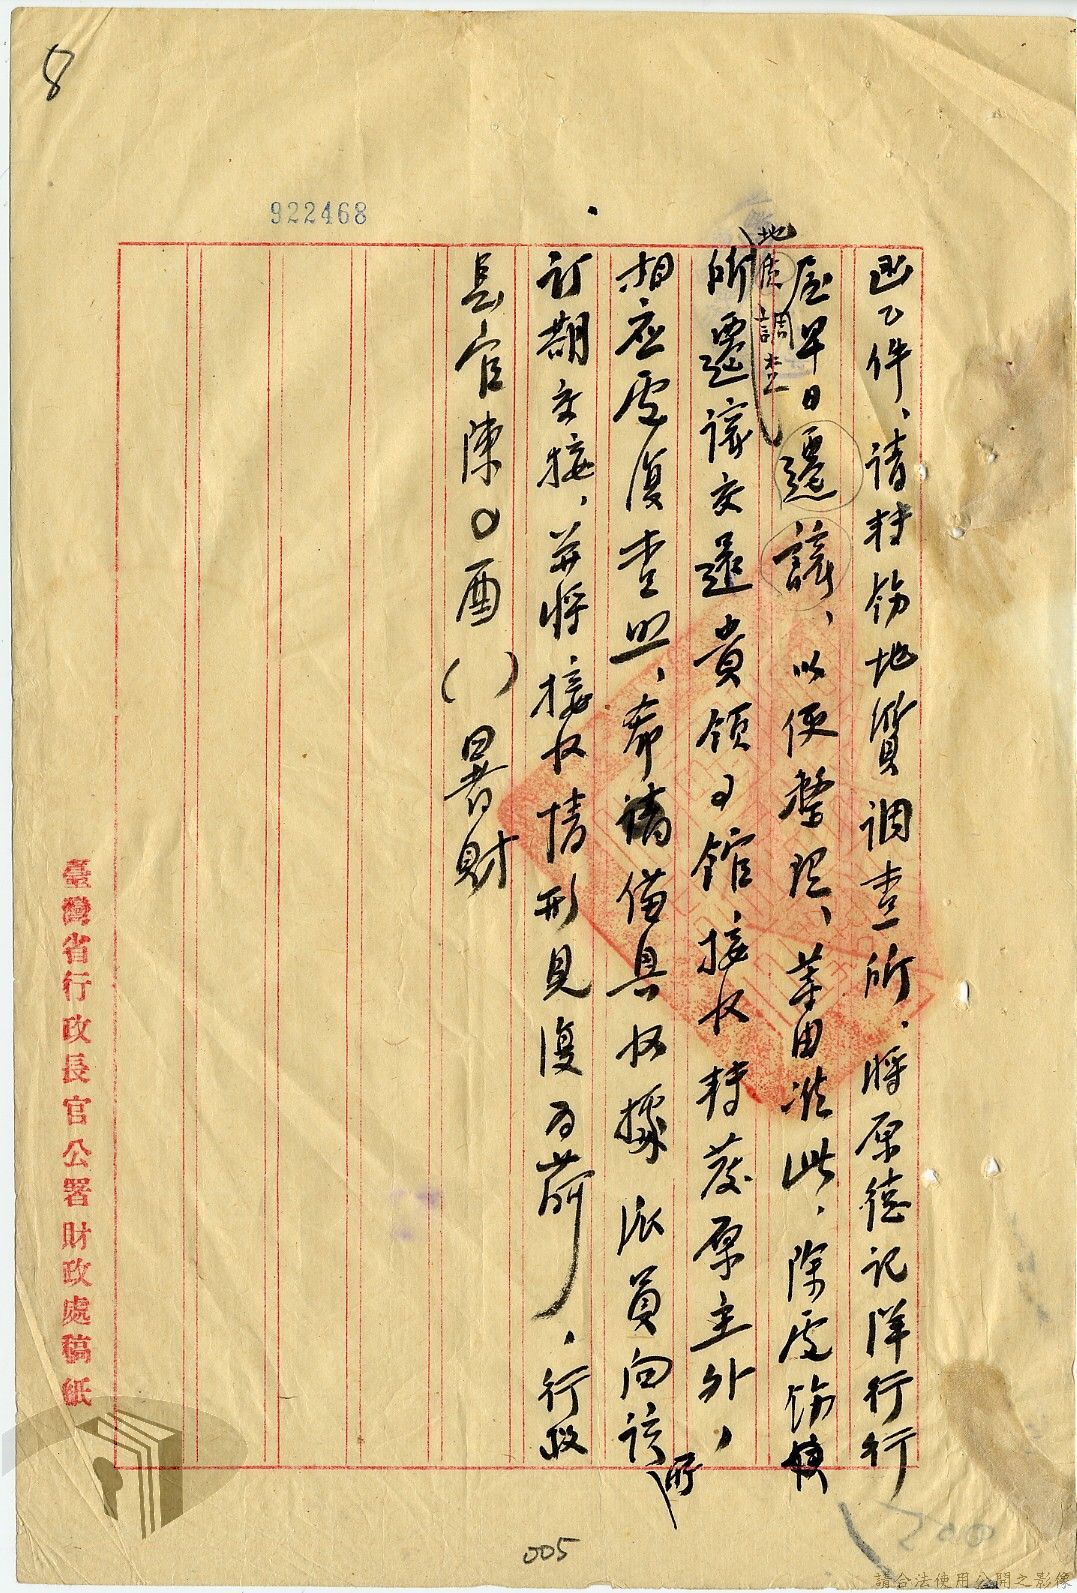 8
922468
函乙件、請轉飭地質調查所、將原德記洋行行
屋早日遷讓、以便整理、等由准此、除電飭
地質調查
所遷讓交還貴領事館接收轉發原主外，
相應電復查照、希請備具收據派員向該所
訂期交接、並將接收情形見復為荷，行政
長官陳〇酉（）署財
臺灣省行政長官公署財政處稿紙
005
200
請合法使用公開之影像